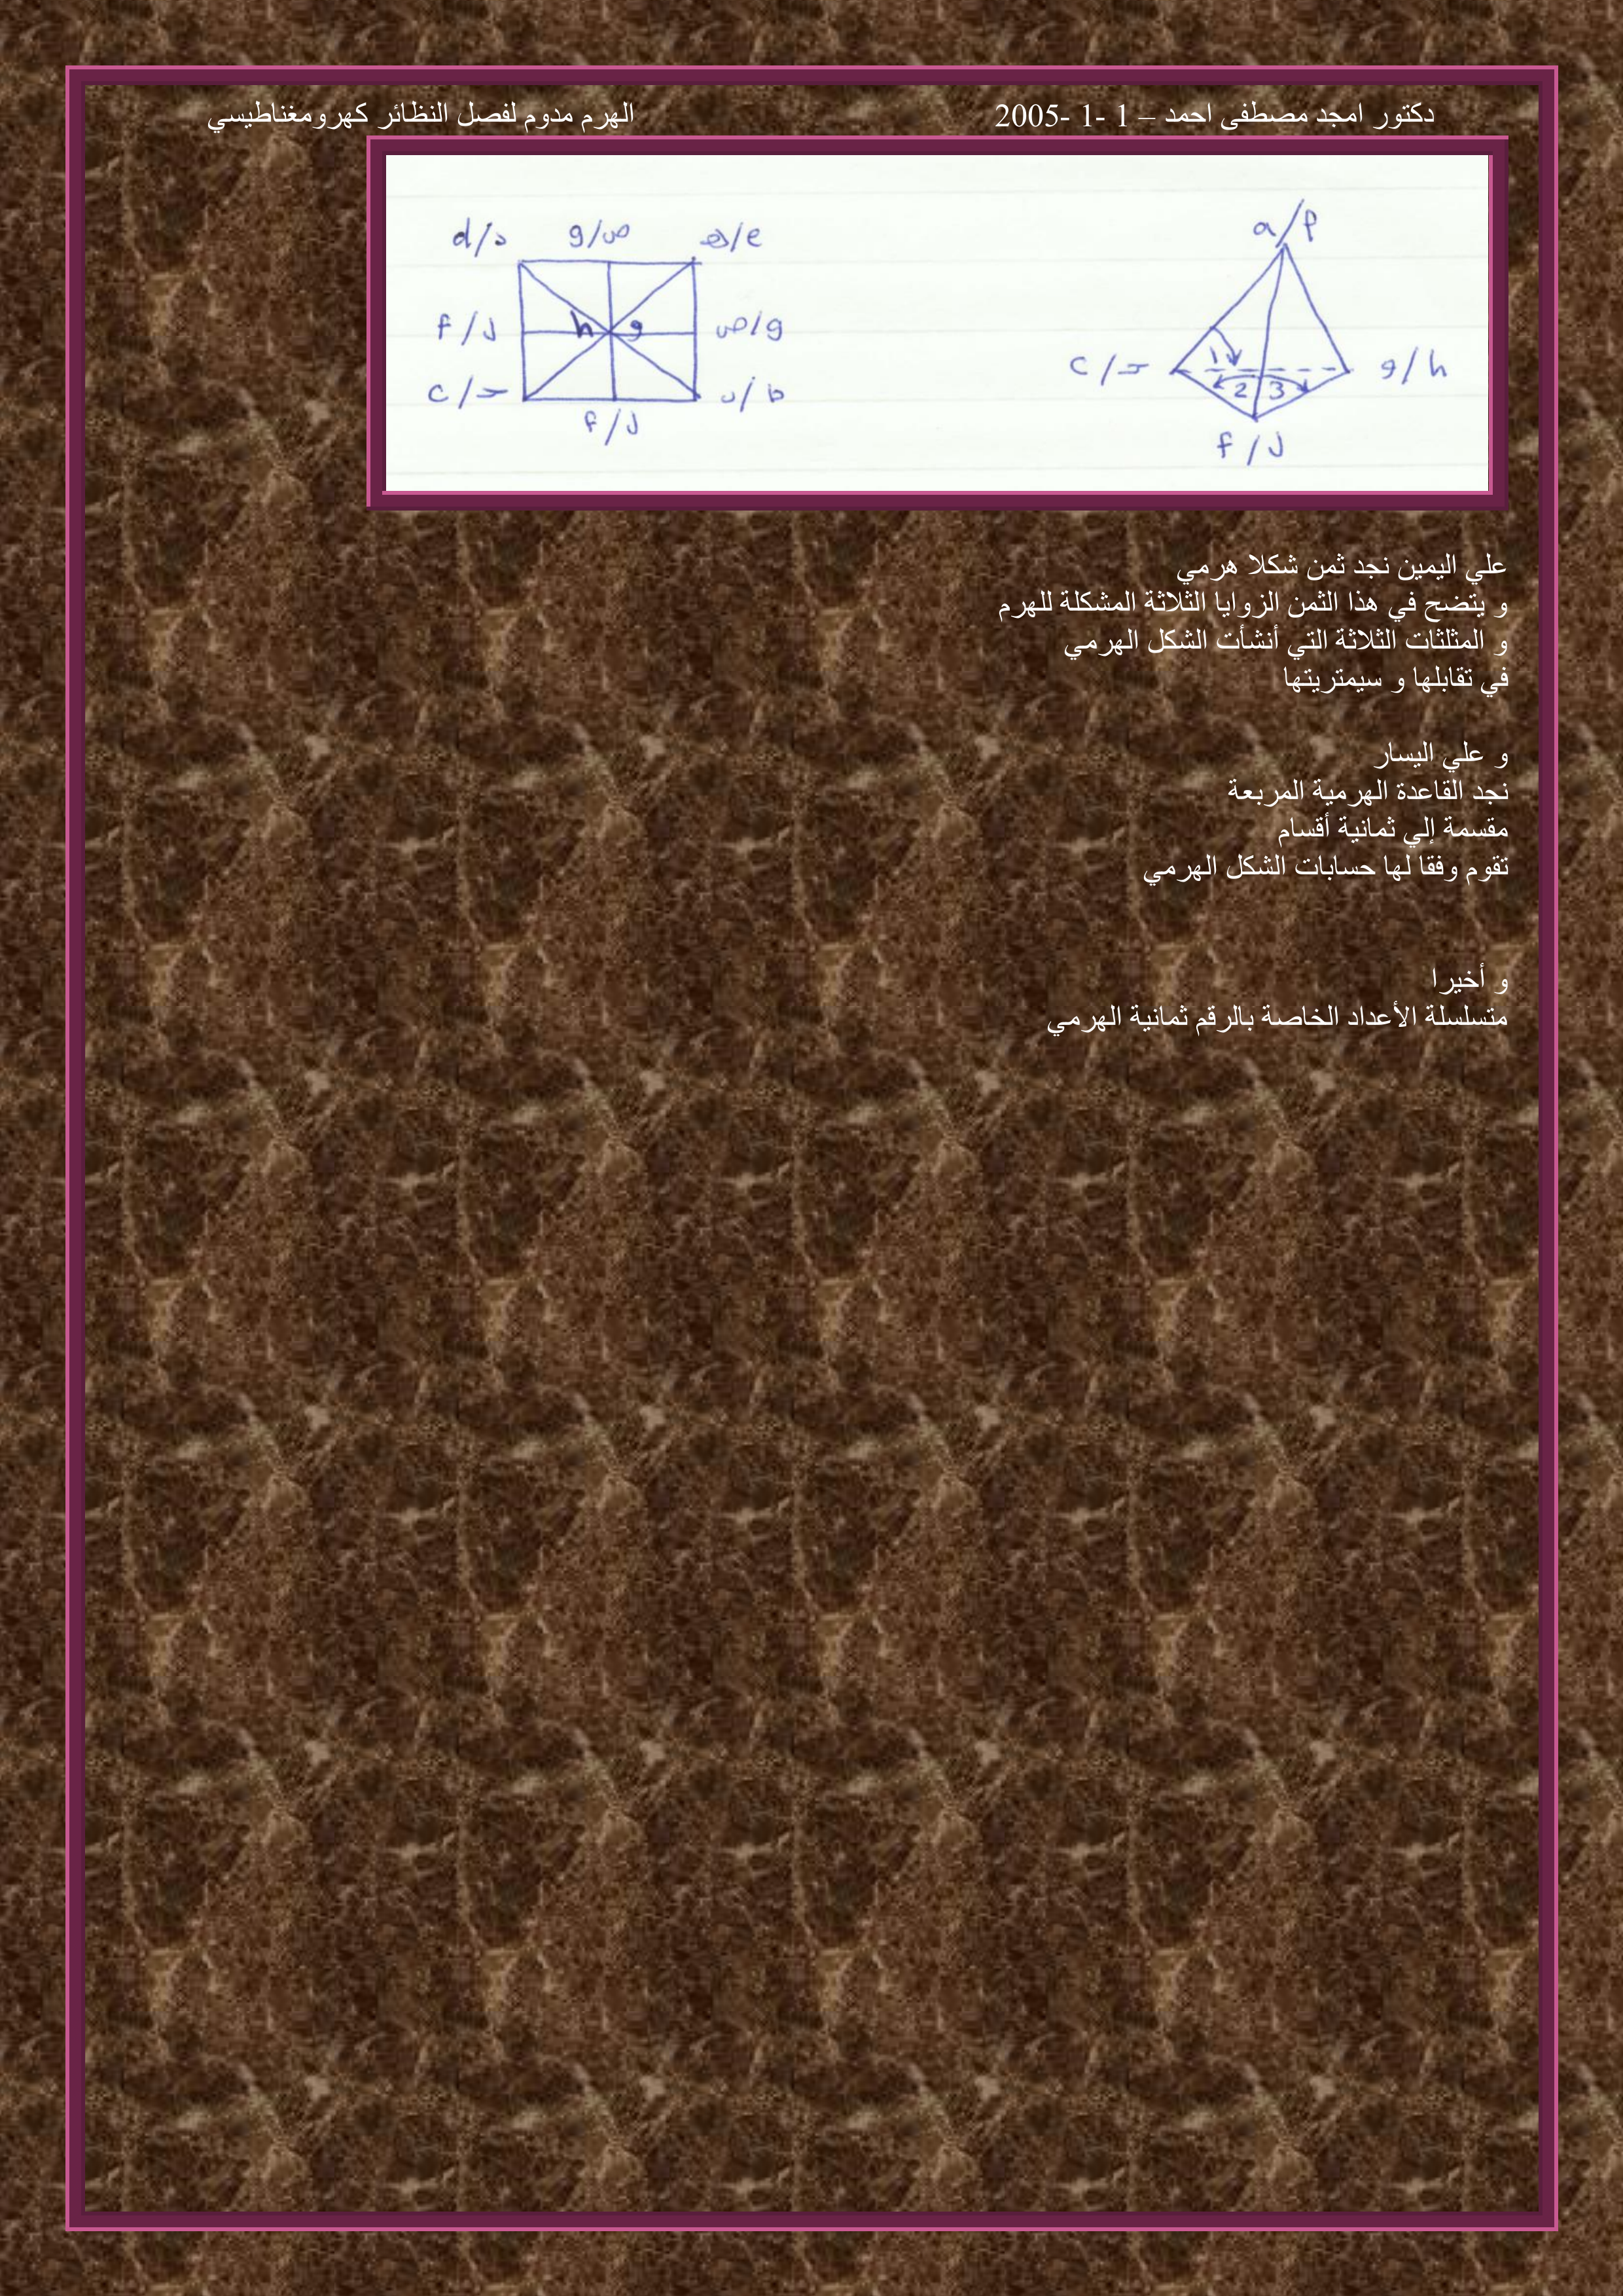 دكتور امجد مصطفى احمد – 1 -1 -2005 الهرم مدوم لفصل النظائر كهرومغناطيسي
a/م
c/ح
g/h
f/ل
1
2
3
d/د
g/ص
ه/e
f/ل
h
ص/g
c/ح
ب/b
f/ل
علي اليمين نجد ثمن شكلا هرمي
و يتضح في هذا الثمن الزوايا الثلاثة المشكلة للهرم
و المثلثات الثلاثة التي أنشأت الشكل الهرمي
في تقابلها و سيمتريتها
و علي اليسار
نجد القاعدة الهرمية المربعة
مقسمة إلي ثمانية أقسام
تقوم وفقا لها حسابات الشكل الهرمي
و أخيرا
متسلسلة الأعداد الخاصة بالرقم ثمانية الهرمي